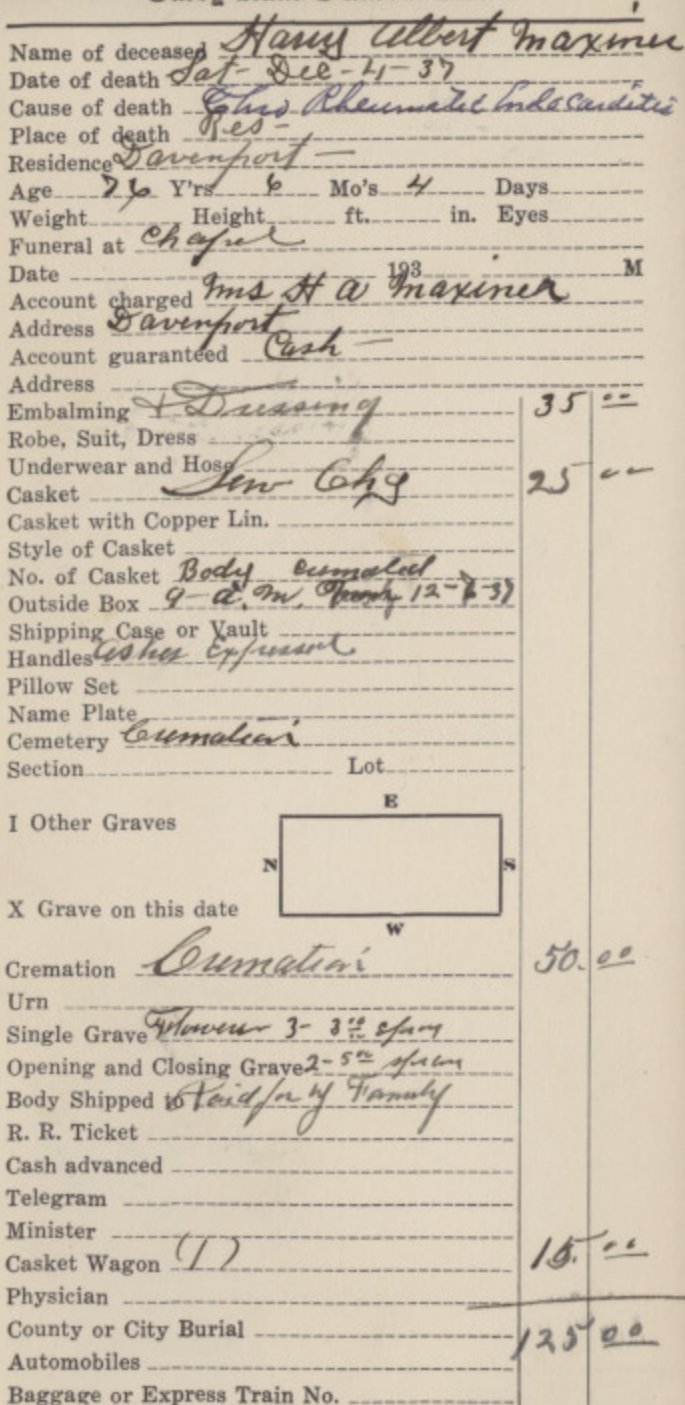 Name of deceased Harry Albert Maxiner
Date of death Sat- Dec-4-37
Cause of death Chro Rheumatic Endocarditis
Place of death Res-
Residence Davenport-
Age 76 Y'rs 6 Mo's 4 Days
Weight Height ft. in. Eyes
Funeral at Chapel
Date 193 M
Account charged Mrs H A Maxiner
Address Davenport
Account guaranteed Cash-
Address
Embalming & Dressing 35 00
Robe, Suit, Dress
Underwear and Hose
Casket Serv Chg 25 00
Casket with Copper Lin.
Style of Casket
No. of Casket Body cremated
Outside Box 9- a. m. 12-7-37
Shipping Case or Vault
Handles Ashes Expressed
Pillow Set
Name Plate
Cemetery Cremation
Section Lot
E
I Other Graves
N S
X Grave on this date
W
Cremation Cremation 50. 00
Urn
Single Grave Flowers 3- 3 00 spray
Opening and Closing Grave 2-5 00 spray
Body Shipped to Paid for by Family
R. R. Ticket
Cash advanced
Telegram
Minister
Casket Wagon (1) 15. 00
Physician
County or City Burial 125 00
Automobiles
Baggage or Express Train No.